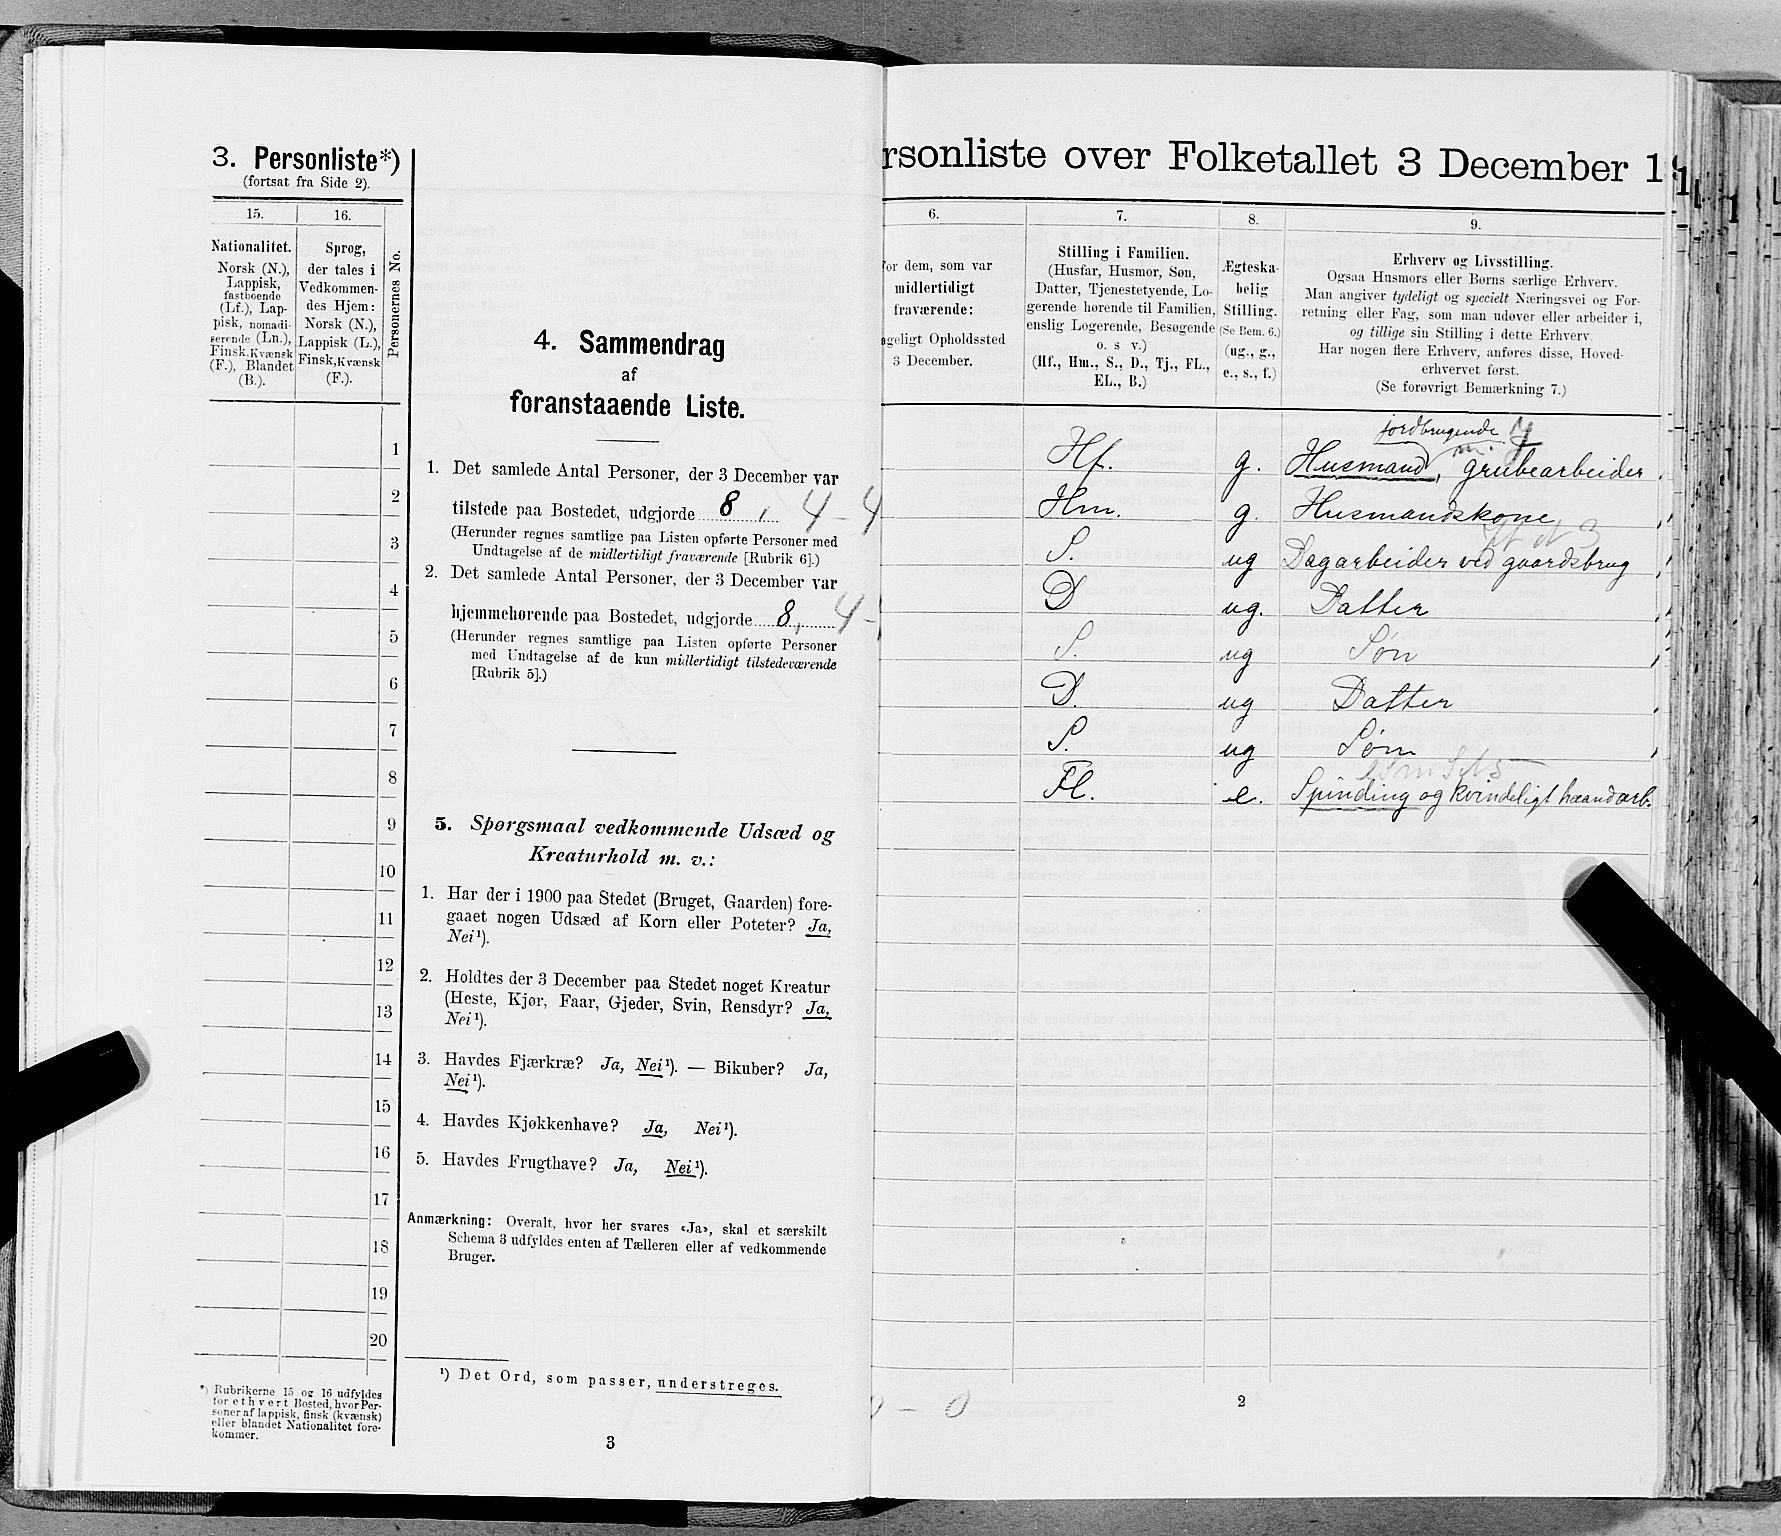 3. Personliste*)
(fortsat fra Side 2).
15.
16.
Personernes No.
Nationalitet.
Norsk (N.),
Lappisk,
fastboende
(Lf.), Lap-
pisk, nomadi-
serende (Ln.),
Finsk, Kvænsk
(F.), Blandet
(B.).
Sprog,
der tales i
Vedkommen-
des Hjem:
Norsk (N.),
Lappisk (L.),
Finsk, Kvænsk
(F.).
1
2
3
4
5
6
7
8
9
10
11
12
13
14
15
16
17
18
19
20
*) Rubrikerne 15 og 16 udfyldes
for ethvert Bosted, hvor Per-
soner af lappisk, finsk (kvænsk)
eller blandet Nationalitet fore-
kommer.
4. Sammendrag
af
foranstaaende Liste.
1. Det samlede Antal Personer, der 3 December var
tilstede paa Bostedet, udgjorde 8, 4-4
(Herunder regnes samtlige paa Listen opførte Personer med
Undtagelse af de midlertidigt fraværende [Rubrik 6].)
2. Det samlede Antal Personer, der 3 December var
hjemmehørende paa Bostedet, udgjorde 8, 4-
(Herunder regnes samtlige paa Listen opførte Personer
med Undtagelse af de kun midlertidigt tilstedeværende
[Rubrik 5].)
5. Spørgsmaal vedkommende Udsæd og
Kreaturhold m. v.:
1. Har der i 1900 paa Stedet (Bruget, Gaarden) fore-
gaaet nogen Udsæd af Korn eller Poteter? Ja,
Nei¹).
2. Holdtes der 3 December paa Stedet noget Kreatur
(Heste, Kjør, Faar, Gjeder, Svin, Rensdyr? Ja,
Nei¹).
3. Havdes Fjærkræ? Ja, Nei¹). — Bikuber? Ja,
Nei¹).
4. Havdes Kjøkkenhave? Ja, Nei¹).
5. Havdes Frugthave? Ja, Nei¹).
Anmærkning: Overalt, hvor her svares «Ja», skal et særskilt
Schema 3 udfyldes enten af Tælleren eller af vedkommende
Bruger.
¹) Det Ord, som passer, understreges.
3
rsonliste over Folketallet 3 December 1
6.
7.
8.
9.
for dem, som var
midlertidigt
fraværende:
geligt Opholdssted
3 December.
Stilling i Familien.
(Husfar, Husmor, Søn,
Datter, Tjenestetyende, Lo-
gerende hørende til Familien,
enslig Logerende, Besøgende
o. s v.)
(Hf., Hm., S., D., Tj., FL.,
EL., B.)
Ægteska-
belig
Stilling.
(Se Bem. 6.)
(ug., g.,
e., s., f.)
Erhverv og Livsstilling.
Ogsaa Husmors eller Børns særlige Erhverv.
Man angiver tydeligt og specielt Næringsvei og For-
retning eller Fag, som man udøver eller arbeider i,
og tillige sin Stilling i dette Erhverv.
Har nogen flere Erhverv, anføres disse, Hoved-
erhvervet først.
(Se forøvrigt Bemærkning 7.)
jordbrugende
m.
Hf. g. Husmand, grubearbeider
Hm. g. Husmandskone
S. ug Dagarbeider ved gaardsbrug
D ug. Datter
S. ug Søn
D. ug Datter
S. ug Søn
Fl. e. Spinding og kvindeligt haandarb.
- 0
2